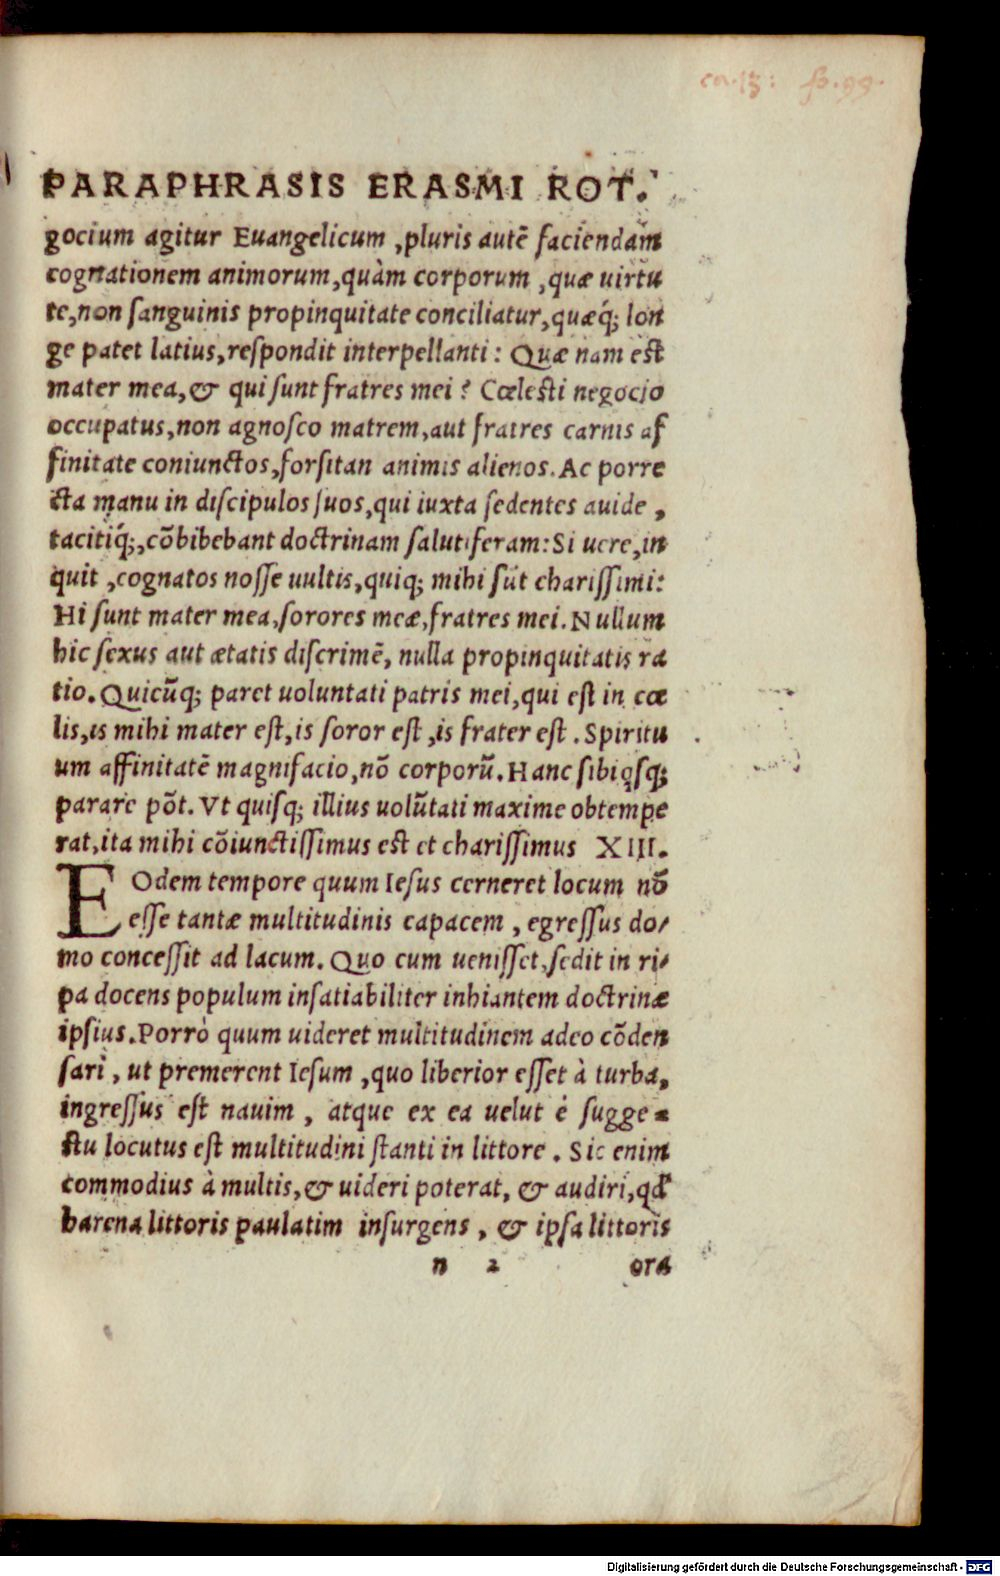 ca.13: fo.99.
PARAPHRASIS ERASMI ROT.
gocium agitur Euangelicum ,pluris autē faciendam
cognationem animorum,quàm corporum ,quæ uirtu
te,non sanguinis propinquitate conciliatur,quæq́; lon
ge patet latius,respondit interpellanti: Quæ nam est
mater mea,& qui sunt fratres mei? Cœlesti negocio
occupatus,non agnosco matrem,aut fratres carnis af
finitate coniunctos,forsitan animis alienos.Ac porre
cta manu in discipulos suos,qui iuxta sedentes auide ,
tacitiq́;,cōbibebant doctrinam salutiferam:Si uere,in
quit ,cognatos nosse uultis,quiq; mihi sūt charissimi:
Hi sunt mater mea,sorores meæ,fratres mei.Nullum
hic sexus aut ætatis discrimē, nulla propinquitatis ra
tio.Quicūq; paret uoluntati patris mei,qui est in cœ
lis,is mihi mater est,is soror est ,is frater est .Spiritu
um affinitatē magnifacio,nō corporū.Hanc sibi qsq;
parare pōt.Vt quisq; illius uolūtati maxime obtempe
rat,ita mihi cōiunctissimus est et charissimus XIII.
EOdem tempore quum Iesus cerneret locum nō
esse tantæ multitudinis capacem , egressus do/
mo concessit ad lacum.Quo cum uenisset,sedit in ri/
pa docens populum insatiabiliter inhiantem doctrinæ
ipsius.Porrò quum uideret multitudinem adeo cōden
sari , ut premerent Iesum ,quo liberior esset à turba,
ingressus est nauim , atque ex ea uelut è sugge=
stu locutus est multitudini stanti in littore . Sic enim
commodius à multis,& uideri poterat, & audiri,qđ
harena littoris paulatim insurgens , & ipsa littoris
n 2 ora
Digitalisierung gefördert durch die Deutsche Forschungsgemeinschaft - DFG